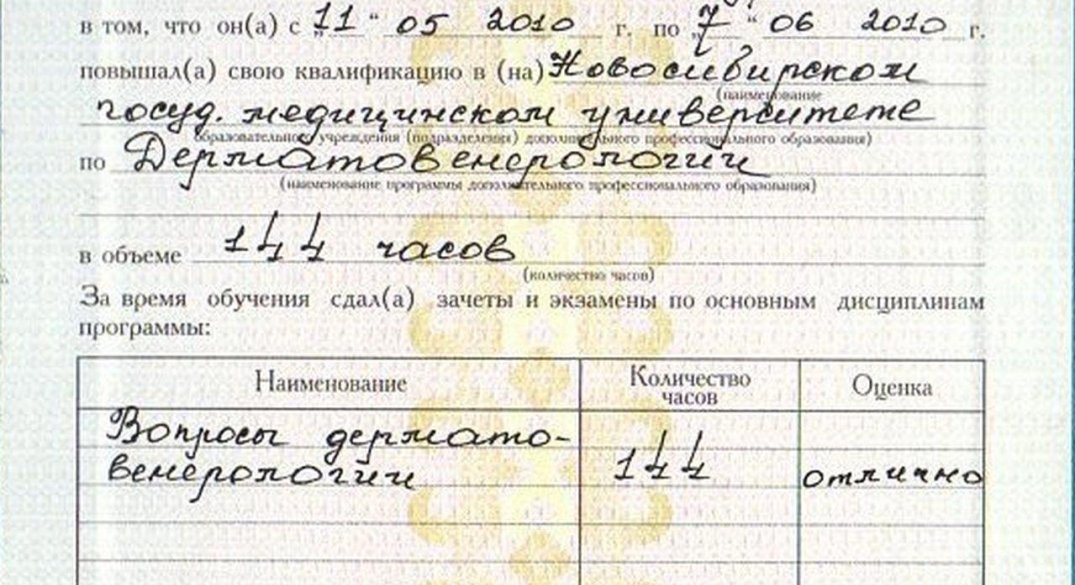 в том, что он(а) с „11“ 05 2010 г. по „7“ 06 2010 г.
повышал(а) свою квалификацию в (на) Новосибирском
(наименование
госуд. медицинском университете
образовательного учреждения (подразделения) дополнительного профессионального образования)
по Дерматовенерологии
(наименование программы дополнительного профессионального образования)
в объеме 144 часов
(количество часов)
За время обучения сдал(а) зачеты и экзамены по основным дисциплинам
программы:
Наименование Количество часов Оценка
Вопросы дермато-
венерологии 144 отлично